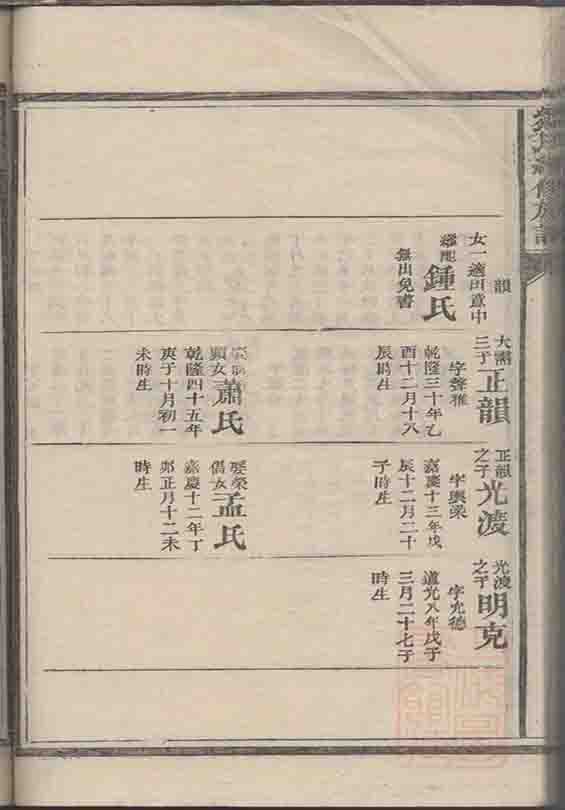 修族譜
韻
女一適田意中
繼配鍾氏
無出免書
大 三子正韻
字聲雅
乾隆三十年乙
酉十二月十八
辰時生
顯女蕭氏
乾隆四十五年
庚子十月初一
未時生
正韻之子光渡
字興榮
嘉慶十三年戊
辰十二月二十
子時生
娶榮 女孟氏
嘉慶十二年丁
卯正月十二未
時生
光渡之子明克
字允德
道光八年戊子
三月二十七子
時生